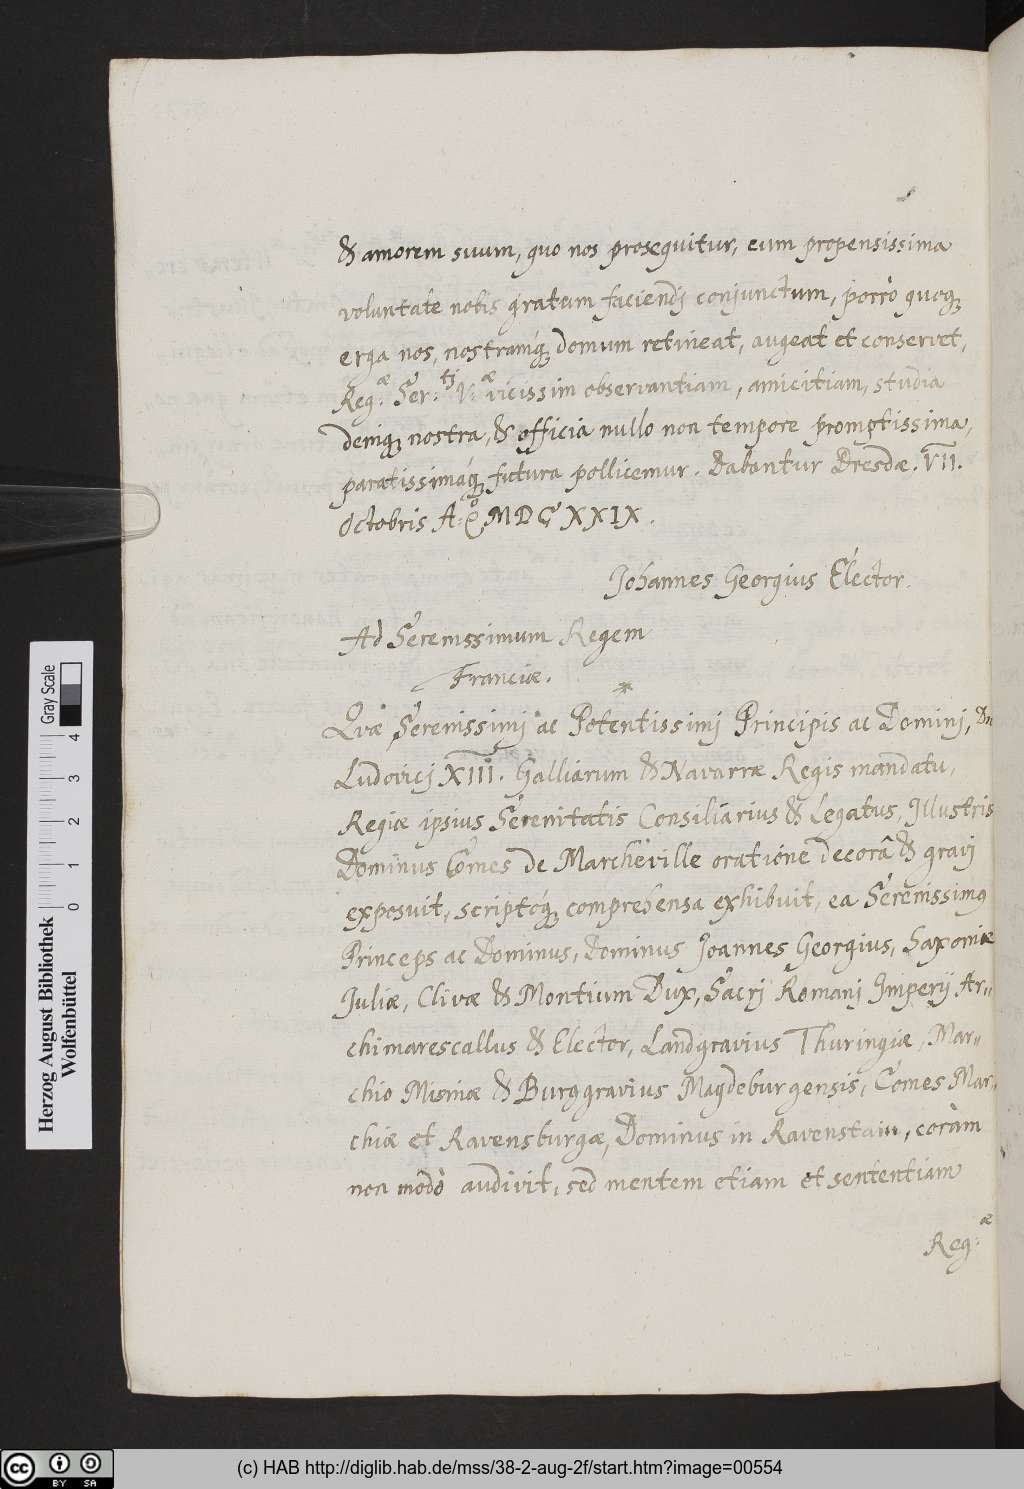 & amorem suum, quo nos prosequitur, eum propensissima
voluntate nobis gratum faciendj conjunctum, porrò quoq;
erga nos, nostramq́; domum retineat, augeat et conservet,
Reg:æ Ser:tj V:æ vicissim observantiam, amicitiam, studia
deniq; nostra, & officia nullo non tempore promptissima,
paratissimaq́; futura pollicemur. Dabantur Dresdæ. VII.
Octobris A:o MDCXXIX.
Johannes Georgius Elector.
Ad Serenissimum Regem
Franciæ.
*
Qvæ Serenissimj ac Potentissimj Principis ac Dominj, Dn
Ludovicj XIII. Galliarum & Navarræ Regis mandatu,
Regiæ ipsius Serenitatis Consiliarius & Legatus, Illustris
Dominus Comes de Marcheville oratione decorâ & gravj
exposuit, scriptóq; comprehensa exhibuit, ea Serenissimus
Princeps ac Dominus, Dominus Joannes Georgius, Saxoniæ
Juliæ, Clivæ & Montium Dux, Sacrj Romanj Imperij Ar-
chimarescallus & Elector, Landgravius Thuringiæ, Mar-
chio Misniæ & Burggravius Magdeburgensis, Comes Mar-
chiæ et Ravensburgæ, Dominus in Ravenstain, coràm
non modò audivit, sed mentem etiam et sententiam
Reg:æ
Herzog August Bibliothek
Wolfenbüttel
0 1 2 3 4
Gray Scale
cc BY SA
(c) HAB http://diglib.hab.de/mss/38-2-aug-2f/start.htm?image=00554